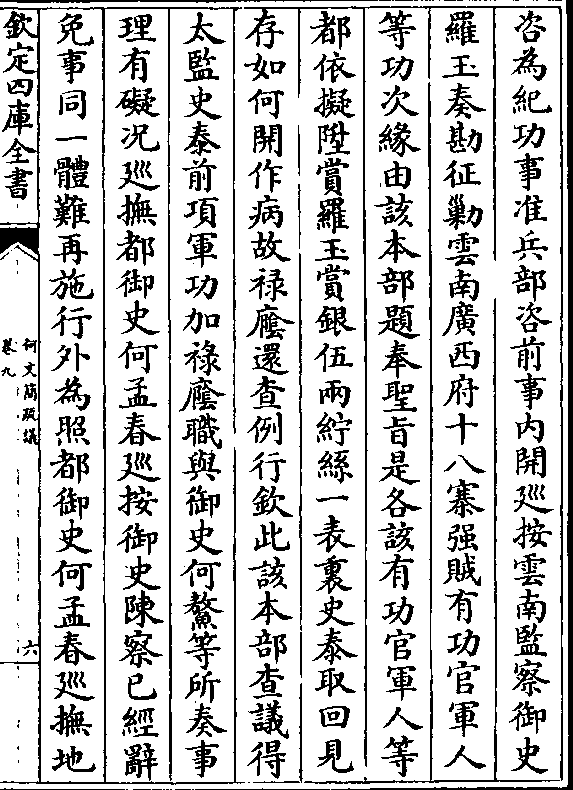 咨為紀功事准兵部咨前事内開廵按雲南監察御史
羅玉奏勘征剿雲南廣西府十八寨强賊有功官軍人
等功次緣由該本部題奉聖旨是各該有功官軍人等
都依擬陞賞羅玉賞銀伍兩紵絲一表裏史泰取回見
存如何開作病故禄廕還查例行欽此該本部查議得
太監史泰前項軍功加禄廕職與御史何鰲等所奏事
理有礙况廵撫都御史何孟春廵按御史陳察已經辭
免事同一體難再施行外為照都御史何孟春廵撫地
欽定四庫全書
何文簡疏議
卷九
六